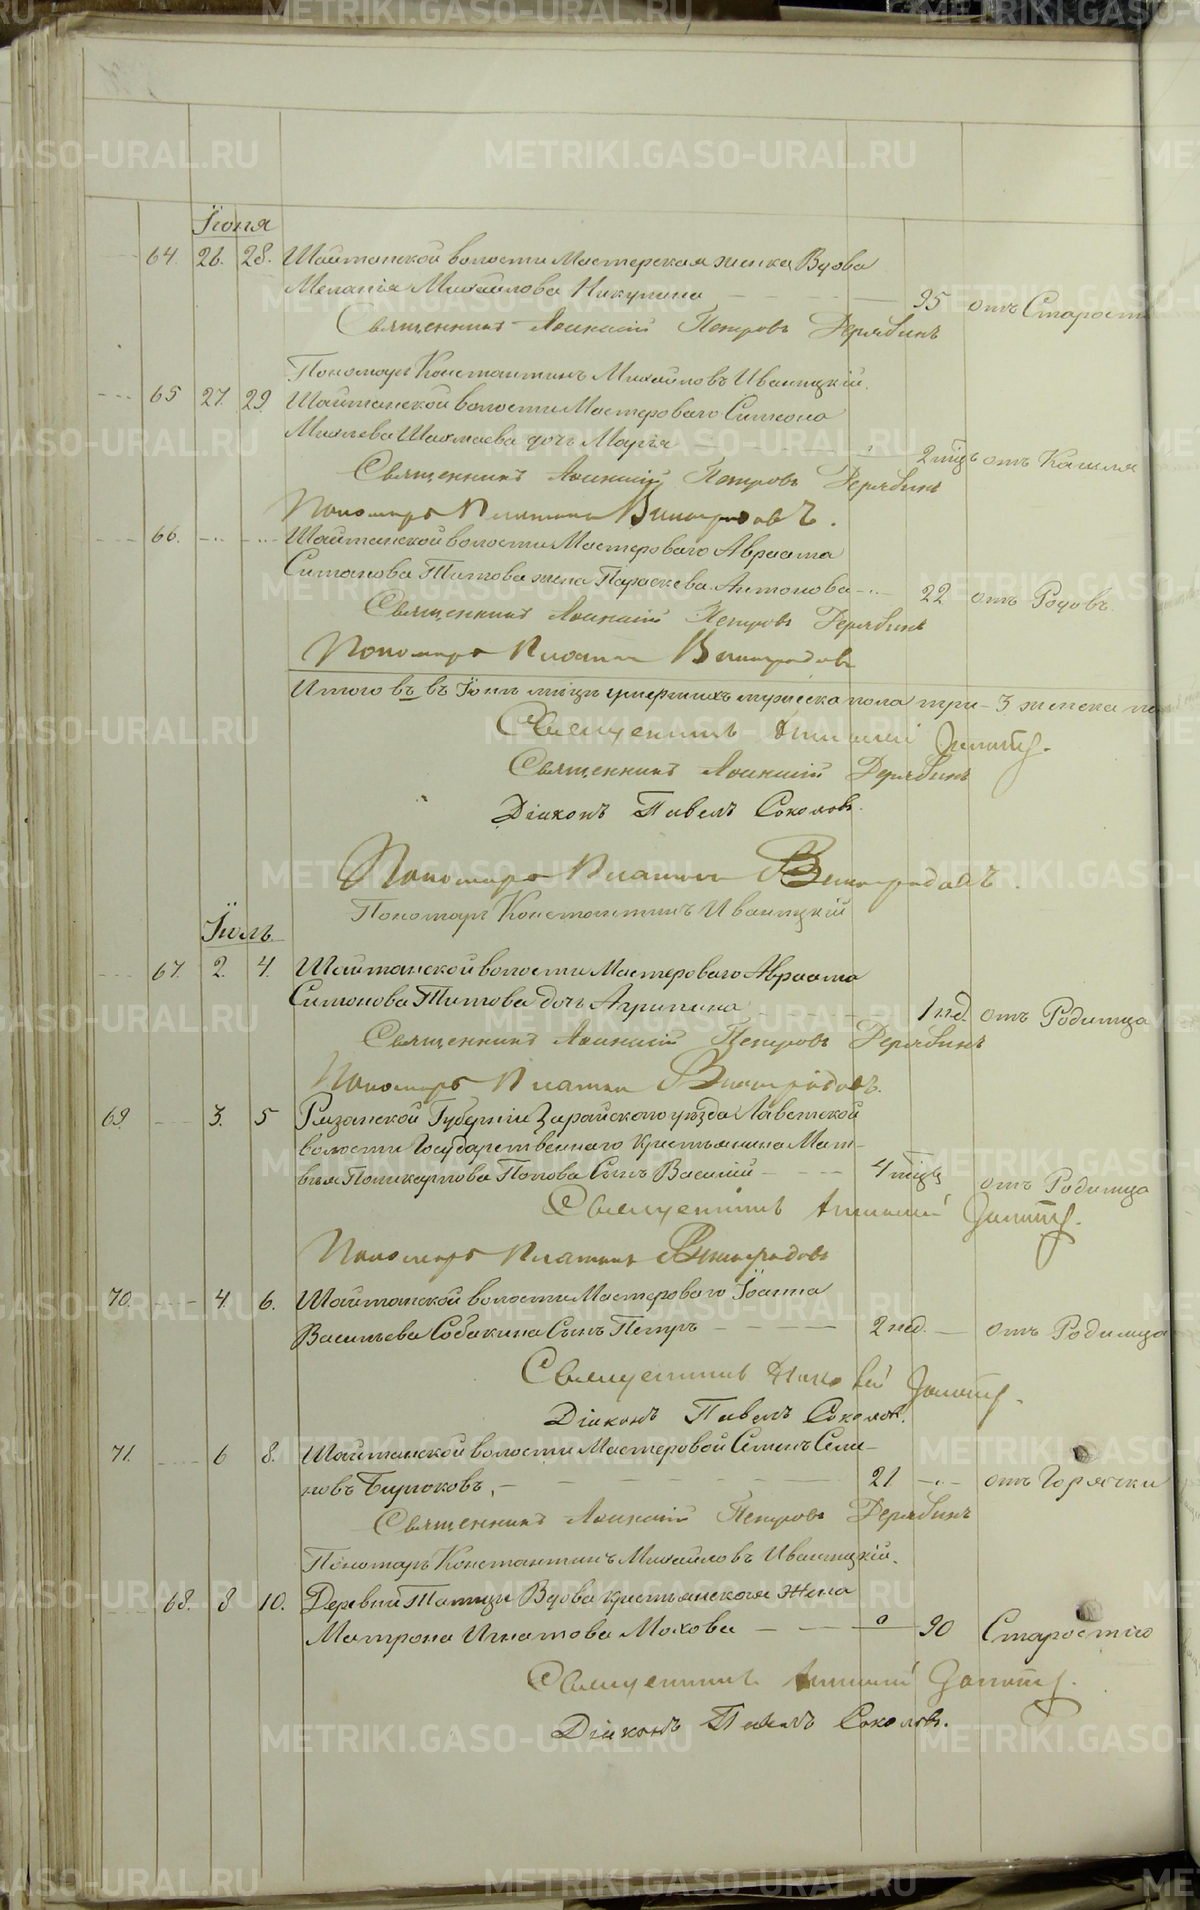 Іюня
64. 26. 28. Шайтанской волости Мастерская женка Вдова
Меланія Михайлова Никулина 95 отъ Старости
Священникъ Іоанникій Петровъ Дерябинъ
Пономарь Константинъ Михайловъ Иваницкій.
65 27. 29. Шайтанской волости Мастероваго Симеона
дочь Марія 2 мѣц. отъ Кашля
Священникъ Іоанникій Петровъ Дерябинъ
Пономарь Платонъ Виноградовъ.
66. Шайтанской волости Мастероваго Авраама
Симонова Титова жена Параскева Антонова 22 отъ Родовъ.
Священникъ Іоанникій Петровъ Дерябинъ
Пономарь Платонъ Виноградовъ
Итого въ въ Іюнѣ мѣцѣ умершихъ мужеска пола три - 3 женска
Священникъ
Священникъ Іоанникій Дерябинъ
Діаконъ Павелъ Соколовъ.
Пономарь Платонъ Виноградовъ.
Пономарь Константинъ Иваницкій
Іюль
67. 2. 4. Шайтанской волости Мастероваго Авраама
Симонова Титова дочь Агрипина 1 нед. отъ Родимца
Священникъ Іоанникій Петровъ Дерябинъ
Пономарь Платонъ Виноградовъ.
69. 3. 5 Рязанской Губерніи Зарайскаго уѣзда
волости Государственнаго Крестьянина Мат-
вѣя Поликарпова Попова Сынъ Василій 4 мѣц. отъ Родимца
Священникъ
Пономарь Платонъ Виноградовъ
70. 4. 6. Шайтанской волости Мастероваго Іоанна
Васильева Собакина Сынъ Петръ 2 нед. отъ Родимца
Священникъ
Діаконъ Павелъ Соколовъ.
71. 6 8. Шайтанской волости Мастеровой Семенъ Семе-
новъ Бирюковъ. 21 отъ Горячки
Священникъ Іоанникій Петровъ Дерябинъ
Пономарь Константинъ Михайловъ Иваницкій.
68. 8 10. Деревни Талицы Вдова крестьянская Жена
Матрона Игнатова Махова 90 Старостію
Священникъ
Діаконъ Павелъ Соколовъ.
METRIKI.GASO-URAL.RU